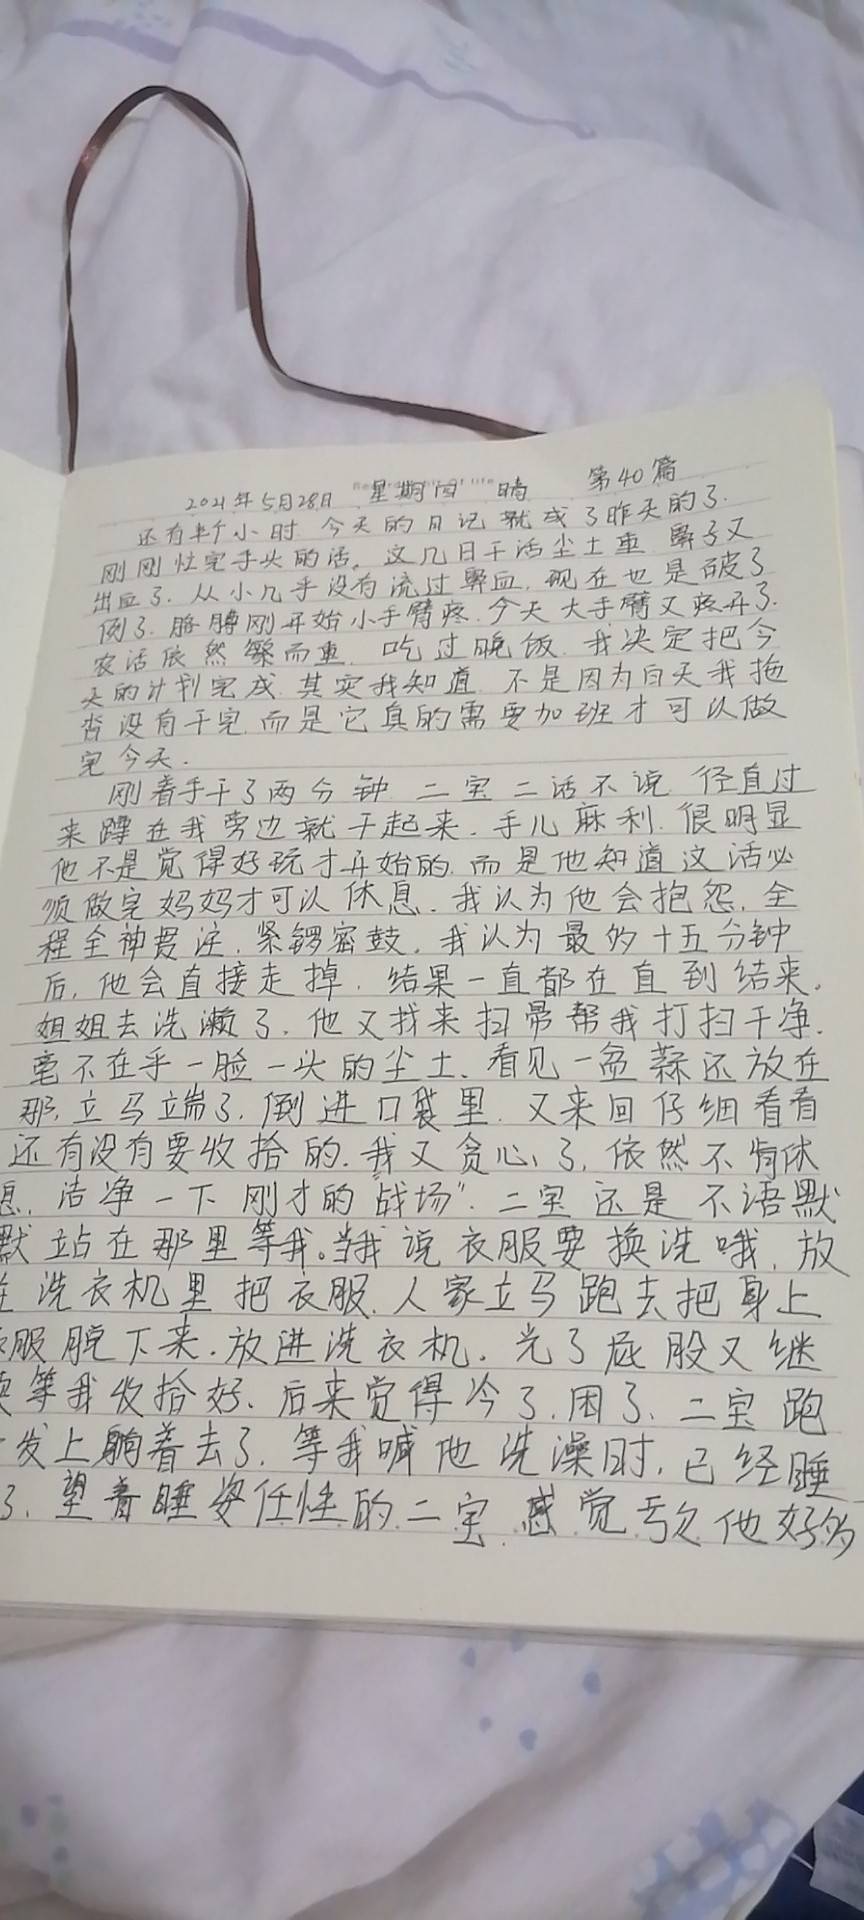 2021年5月28日 星期四 晴 第40篇
还有半个小时 今天的日记就成了昨天的了.
刚刚忙完手头的活。这几日干活尘土重 鼻子又
出血了. 从小几乎没有流过鼻血, 现在也是破了
例了. 胳膊刚开始小手臂疼. 今天大手臂又疼开了.
农活依然繁而重. 吃过晚饭. 我决定把今
天的计划完成. 其实我知道 不是因为白天我拖
沓没有干完 而是它真的需要加班才可以做
完今天.
刚着手干了两分钟 二宝二话不说 径直过
来蹲在我旁边就干起来. 手儿麻利. 很明显
他不是觉得好玩才开始的. 而是他知道这活必
须做完妈妈才可以休息. 我认为他会抱怨. 全
程全神贯注. 紧锣密鼓. 我认为最多十五分钟
后, 他会直接走掉. 结果一直都在直到结束.
姐姐去洗濑了. 他又找来扫帚帮我打扫干净.
毫不在乎一脸一头的尘土. 看见一盆蒜还放在
那, 立马端了. 倒进口袋里. 又来回仔细看看
还有没有要收拾的. 我又贪心了. 依然不肯休
息. 洁净一下刚才的"战场". 二宝还是不语默
默站在那里等我。当我说衣服要换洗哦, 放
洗衣机里把衣服. 人家立马跑去把身上
服脱下来. 放进洗衣机. 光了屁股又继
等我收拾好. 后来觉得冷了. 困了. 二宝跑
发上躺着去了. 等我喊他洗澡时. 已经睡
了. 望着睡姿任性的二宝 感觉亏欠他好多